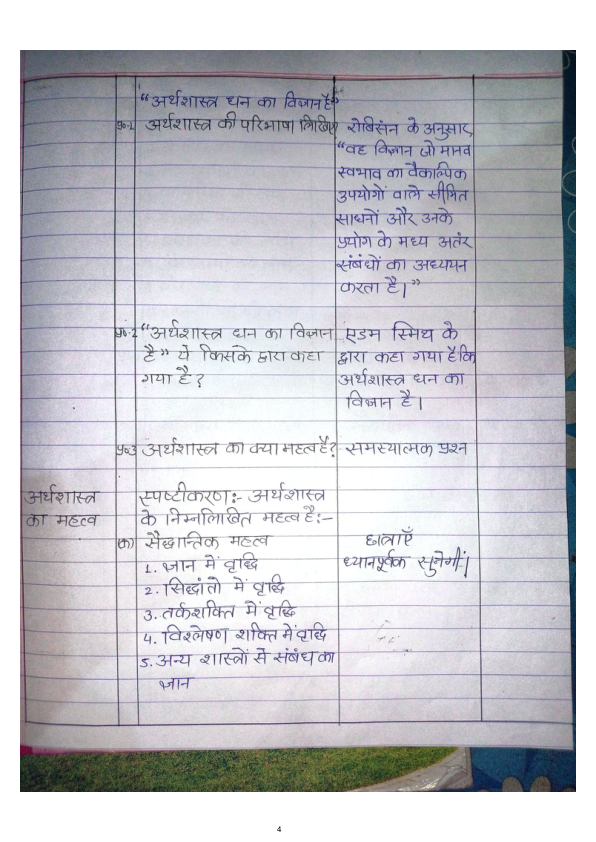 “अर्थशास्त्र धन का विज्ञान है”
प्र०-1 अर्थशास्त्र की परिभाषा लिखिए
रोबिसंन के अनुसार,
“वह विज्ञान जो मानव
स्वभाव का वैकल्पिक
उपयोगों वाले सीमित
साधनों और उनके
प्रयोग के मध्य अतंर
संबंधों का अध्ययन
करता है।”
प्र०-2 “अर्थशास्त्र धन का विज्ञान
है” ये किसके द्वारा कहा
गया है?
एडम स्मिथ के
द्वारा कहा गया है कि
अर्थशास्त्र धन का
विज्ञान है।
प्र०3 अर्थशास्त्र का क्या महत्व है?
समस्यात्मक प्रश्न
अर्थशास्त्र
का महत्व
स्पष्टीकरण:- अर्थशास्त्र
के निम्नलिखित महत्व है:-
क) सैद्धान्तिक महत्व
1. ज्ञान में वृद्धि
2. सिद्धांतो में वृद्धि
3. तर्कशक्ति में वृद्धि
4. विश्लेषण शक्ति में वृद्धि
5. अन्य शास्त्रों से संबंध का
ज्ञान
छात्राएँ
ध्यानपूर्वक सुनेगीं।
4